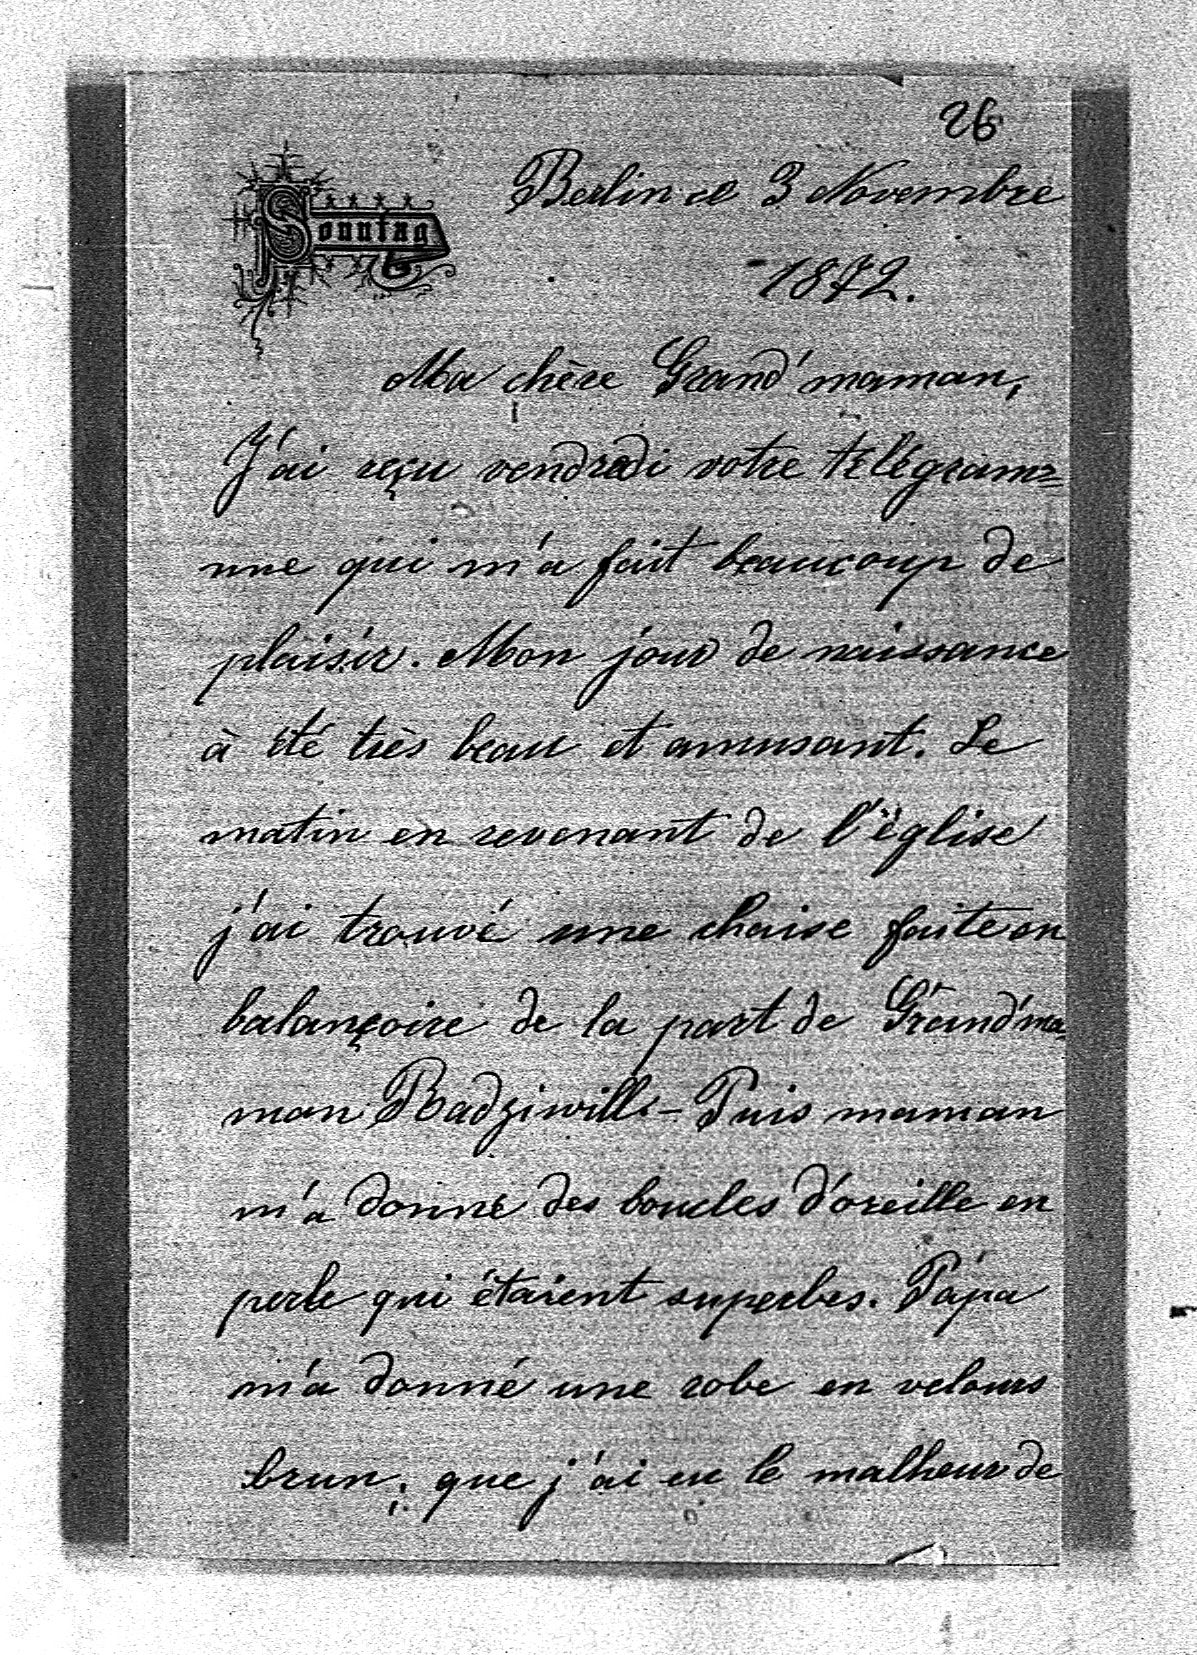 26
Sonntag
Berlin ce 3 Novembre
1872.
Ma chère Grand'maman,
J'ai reçu vendredi votre télégram=
me qui m'a fait beaucoup de
plaisir. Mon jour de naissance
à été très beau et amusant. Le
matin en revenant de l'église
j'ai trouvé une chaise faite en
balançoire de la part de Grand'ma-
man Radziwill - Puis maman
m'a donné des boucles d'oreille en
perle qui étaient superbes. Papa
m'a donné une robe en velours
brun, que j'ai eu le malheur de